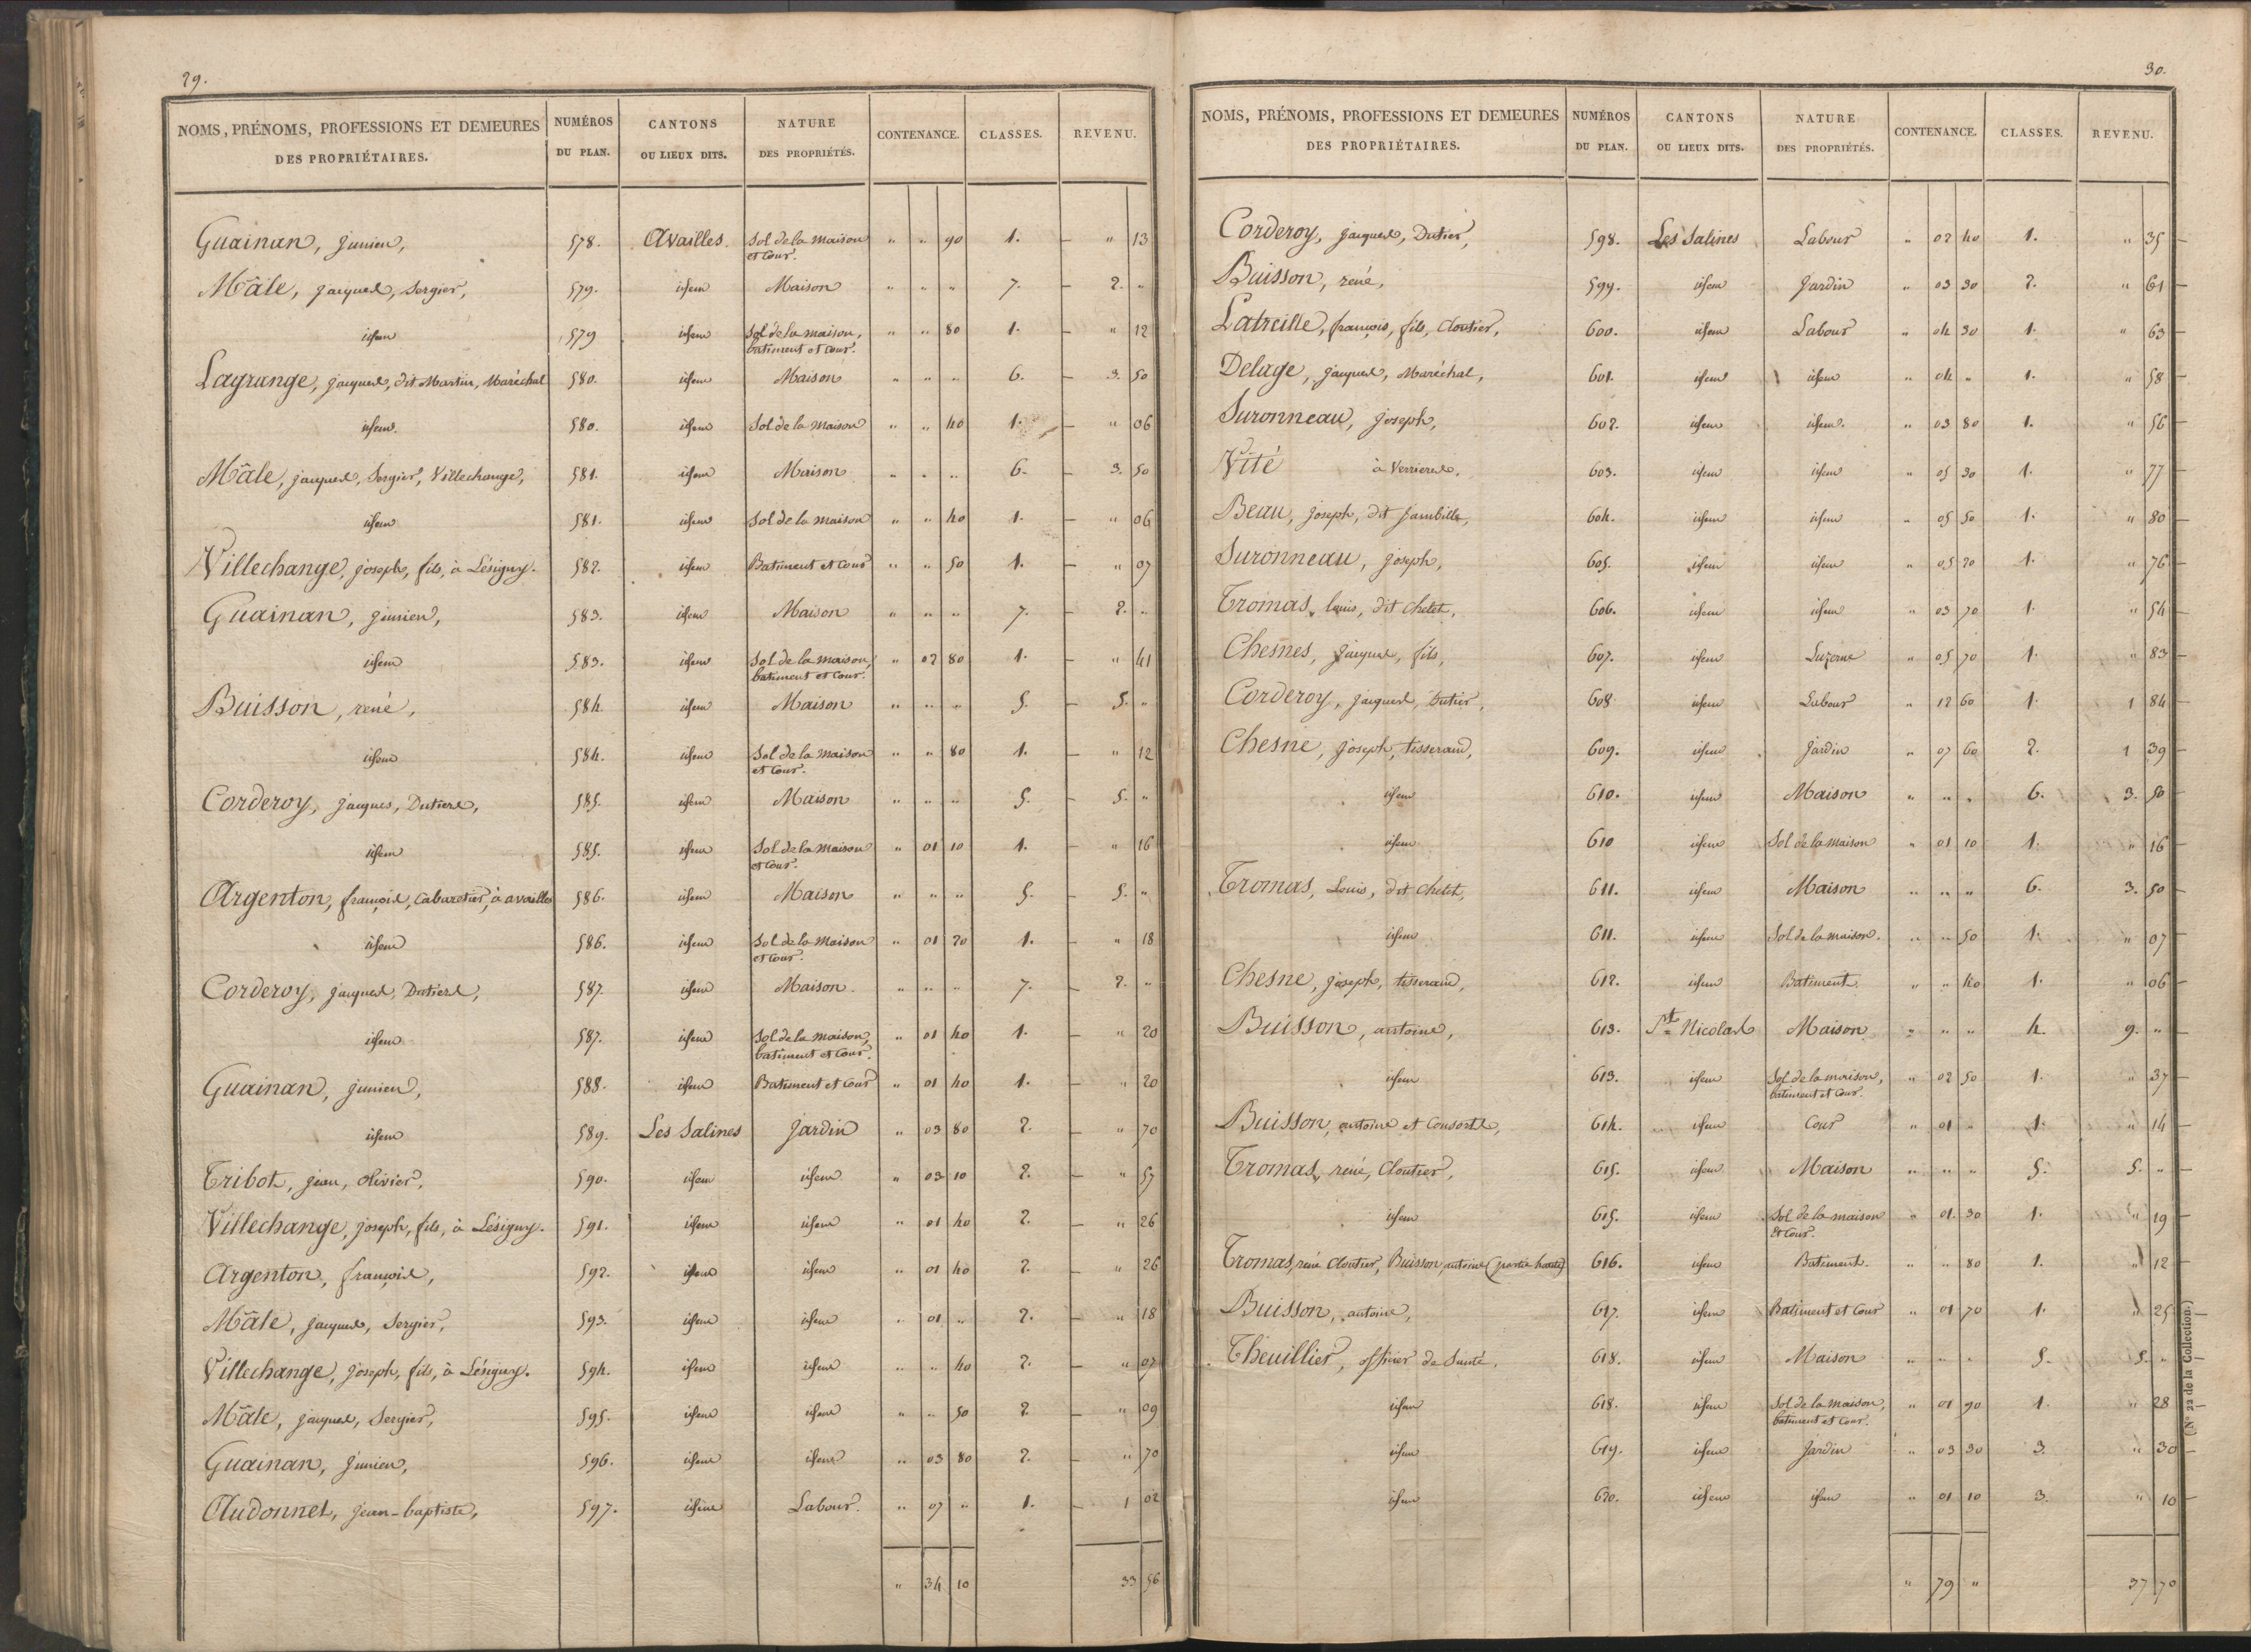 29.
NOMS, PRÉNOMS, PROFESSIONS ET DEMEURES DES PROPRIÉTAIRES. NUMÉROS DU PLAN. CANTONS OU LIEUX DITS. NATURE DES PROPRIÉTÉS. CONTENANCE. CLASSES. REVENU.
Guainan, junien, 578. Availles. Sol de la maison et Cour. " " 90 1. " 13
Mâle, jacques, Sergier, 579. idem Maison " " " 7. 2. "
idem 579 idem Sol de la maison, batiment et cour. " " 80 1. " 12
Lagrange, jacques, dit Martin, Maréchal 580. idem Maison " " " 6. 3. 50
idem. 580. idem Sol de la maison " " 40 1. " 06
Mâle, jacques, Sergier, Villechange, 581. idem Maison " " " 6. 3. 50
idem 581. idem Sol de la maison " " 40 1. " 06
Villechange, joseph, fils, à Lésigny. 582. idem Batiment et Cour " " 50 1. " 07
Guainan, junien, 583. idem Maison " " " 7. 2. "
idem 583. idem Sol de la maison, batiment et Cour. " 02 80 1. " 41
Buisson, rené, 584. idem Maison " " " 5. 5. "
idem 584. idem Sol de la maison et Cour. " " 80 1. " 12
Corderoy, jacques, Dutiers, 585. idem Maison " " " 5. 5. "
idem 585. idem Sol de la maison et Cour. " 01 10 1. " 16
Argenton, françois, Cabaretier, à availles 586. idem Maison " " " 5. 5. "
idem 586. idem Sol de la maison et Cour. " 01 20 1. " 18
Corderoy, jacques, Dutiers, 587. idem Maison. " " " 7. 2. "
idem 587. idem Sol de la maison, batiment et Cour. " 01 40 1. " 20
Guainan, junien, 588. idem Batiment et Cour " 01 40 1. " 20
idem 589. Les Salines jardin " 03 80 2. " 70
Tribot, jean, olivier, 590. idem idem " 03 10 2. " 57
Villechange, joseph, fils, à Lésigny. 591. idem idem " 01 40 2. " 26
Argenton, françois, 592. idem idem " 01 40 2. " 26
Mâle, jacques, Sergier, 593. idem idem " 01 " 2. " 18
Villechange, joseph, fils, à Lésigny. 594. idem idem " " 40 2. " 07
Mâle, jacques, Sergier, 595. idem idem " " 50 2. " 09
Guainan, junien, 596. idem idem " 03 80 2. " 70
Audonnet, jean-baptiste, 597. idem Labour. " 07 " 1. 1 02
" 34 10 33 56
30.
NOMS, PRÉNOMS, PROFESSIONS ET DEMEURES DES PROPRIÉTAIRES. NUMÉROS DU PLAN. CANTONS OU LIEUX DITS. NATURE DES PROPRIÉTÉS. CONTENANCE. CLASSES. REVENU.
Corderoy, jacques, Dutier, 598. Les Salines Labour " 02 40 1. " 35
Buisson, rené, 599. idem Jardin " 03 30 2. " 61
Latreille, françois, fils, Cloutier, 600. idem Labour " 04 30 1. " 63
Delage, jacques, Maréchal, 601. idem idem " 04 " 1. " 58
Suronneau, joseph, 602. idem idem. " 03 80 1. " 56
Vité à Verrieres. 603. idem idem " 05 30 1. " 77
Beau, joseph, dit jambille, 604. idem idem " 05 50 1. " 80
Suronneau, joseph, 605. idem idem " 05 20 1. " 76
Tromas, louis, dit chelet, 606. idem idem " 03 70 1. " 54
Chesnes, jacques, fils, 607. idem Luzerne " 05 70 1. " 83
Corderoy, jacques, Dutier, 608 idem Labour " 12 60 1. 1 84
Chesne, joseph, tisserand, 609. idem Jardin " 07 60 2. 1 39
idem 610. idem Maison " " " 6. 3. 50
idem 610 idem Sol de la maison " 01 10 1. " 16
Tromas, Louis, dit chelet, 611. idem Maison " " " 6. 3. 50
idem 611. idem Sol de la maison. " " 50 1. " 07
Chesne, joseph, tisserand, 612. idem Batiment " " 40 1. " 06
Buisson, antoine, 613. St Nicolas Maison " " " 4. 9. "
idem 613. idem Sol de la maison, batiment et Cour. " 02 50 1. " 37
Buisson, antoine et Consorts, 614. idem Cour " 01 " 1. " 14
Tromas, rené, Cloutier, 615. idem Maison " " " 5. 5. "
idem 615. idem Sol de la maison et Cour. " 01. 30 1. " 19
Tromas, réné Cloutier, Buisson, antoine (partie haute) 616. idem Batiment. " " 80 1. " 12
Buisson, antoine, 617. idem Batiment et Cour " 01 70 1. " 25
Theuillier, officier de Santé. 618. idem Maison " " " 5. 5. "
idem 618. idem Sol de la maison, batiment et Cour. " 01 90 1. " 28
idem 619. idem Jardin " 03 30 3. " 30
idem 620. idem idem " 01 10 3. " 10
" 79 " 37 70
(N° 22 de la Collection.)